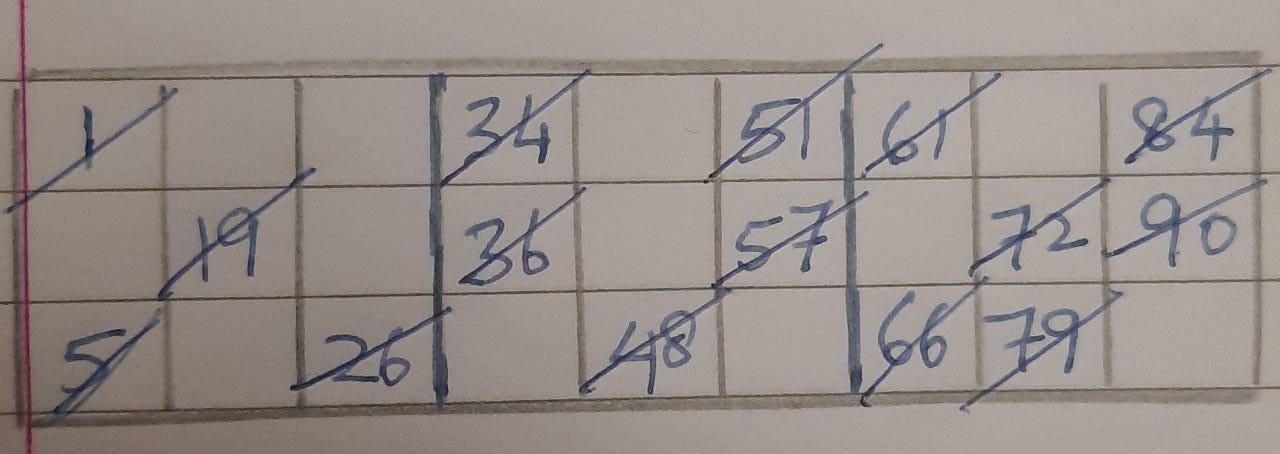 1 34 51 61 84
19 36 57 72 90
5 26 48 66 79